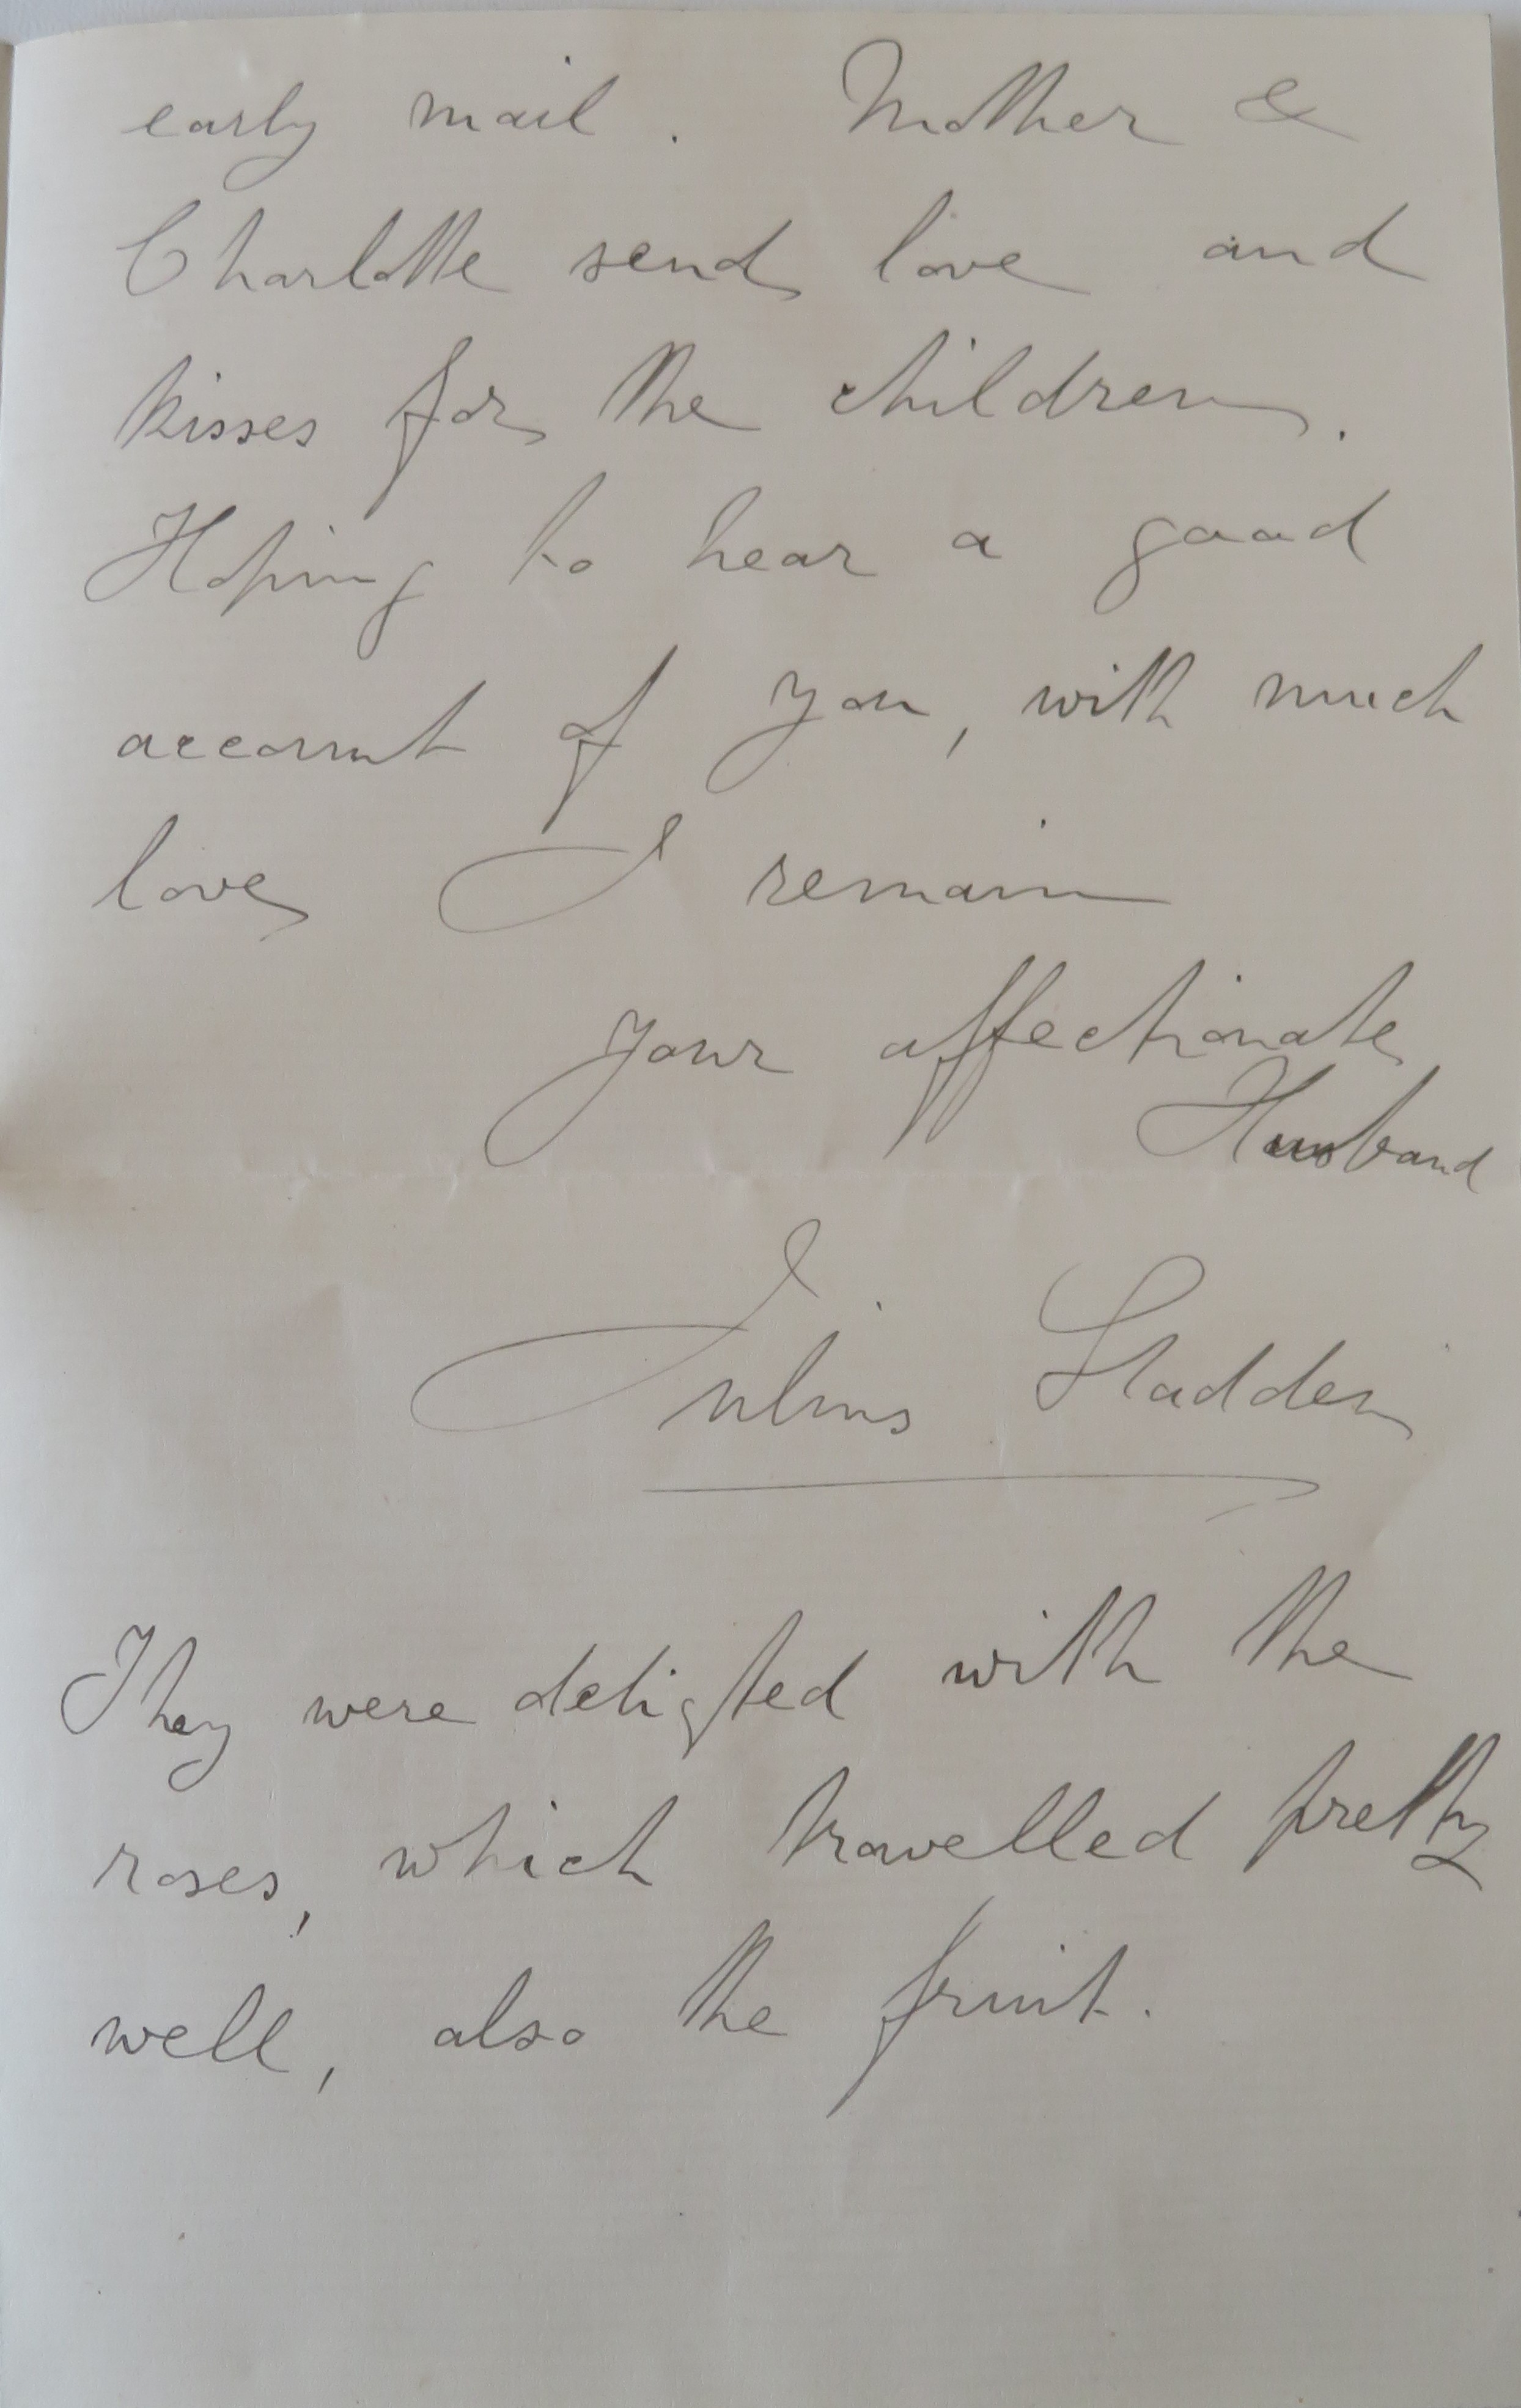 early mail. Mother &
Charlotte send love and
kisses for the children.
Hoping to hear a good
account of you, with much
love I remain
your affectionate
Husband
Julius Sladden
They were deligted with the
roses, which travelled pretty
well, also the fruit.